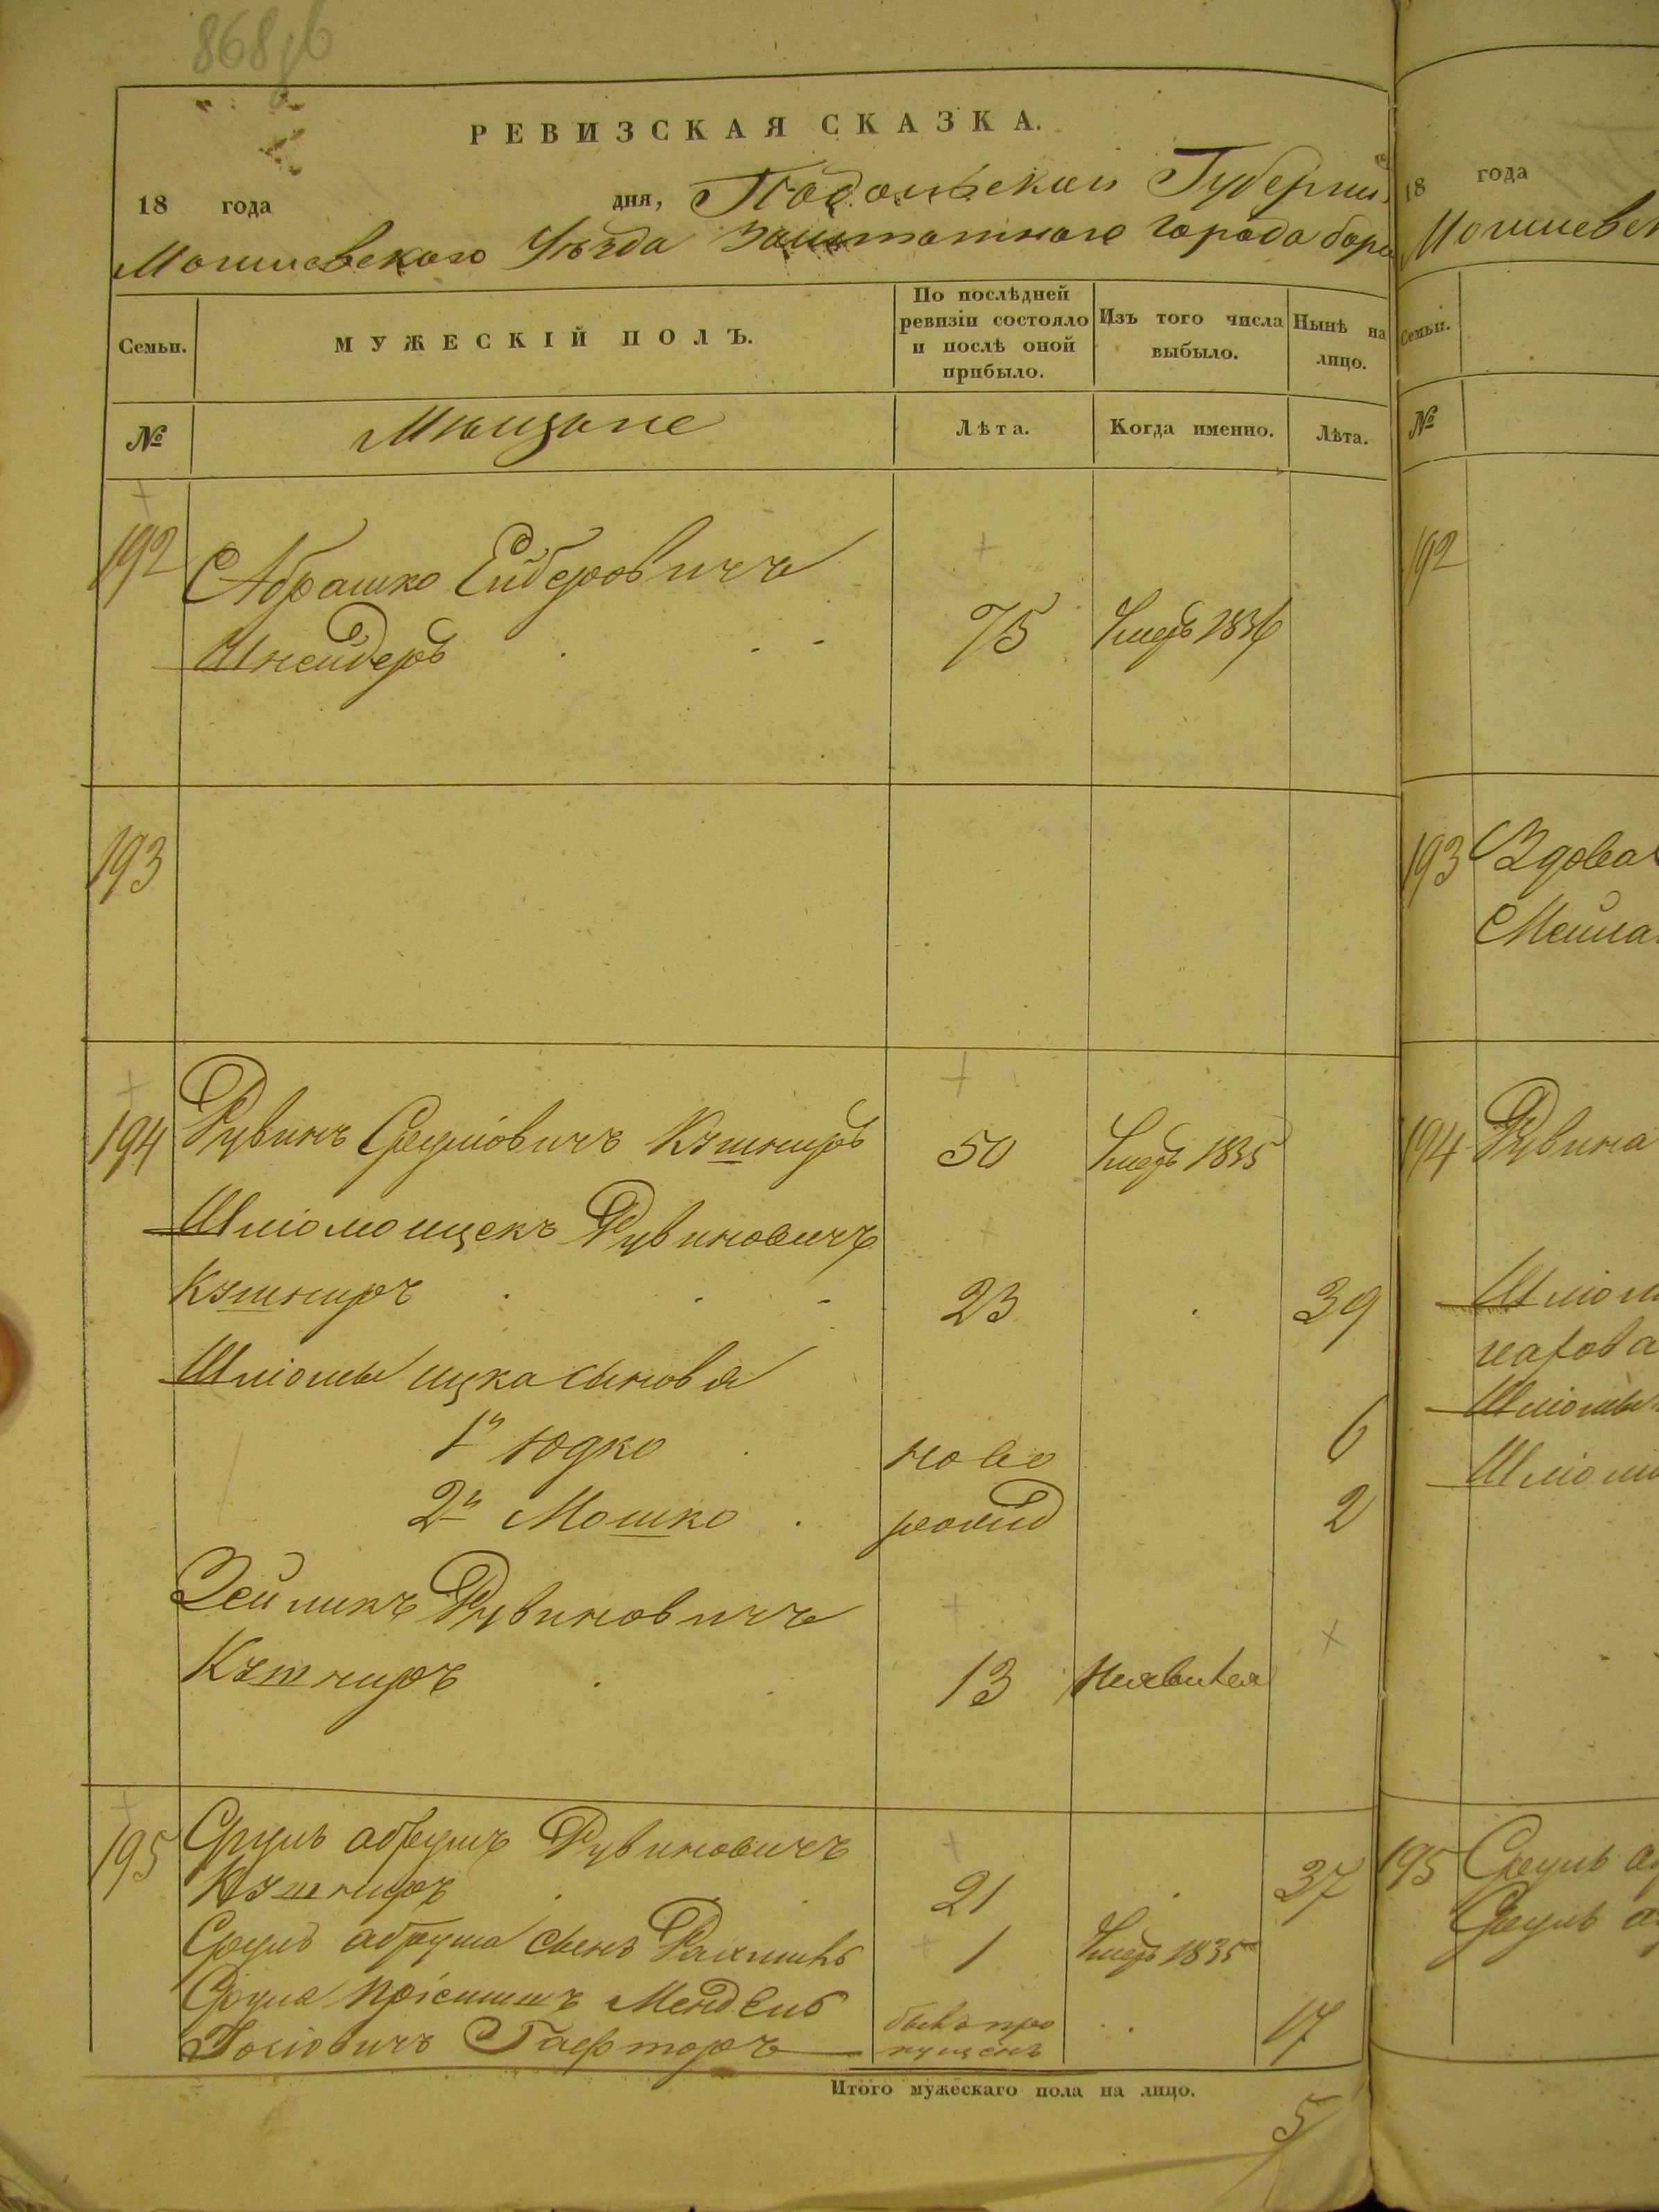 868 об
РЕВИЗСКАЯ СКАЗКА.
18 года дня, Подольской Губерніи
Могилевскаго Уѣзда Заштатнаго города бара
Семьи.
МУЖЕСКІЙ ПОЛЪ.
По послѣдней ревизіи состояло и послѣ оной прибыло.
Изъ того числа выбыло.
Нынѣ на лицо.
№
Мѣщане
Лѣта.
Когда именно.
Лѣта.
192 Абрашко Лейберовичъ
Шнейдеръ 75 Умеръ 1836
193
194 Рувинъ Срулiовичъ Кушниръ 50 Умеръ 1835
Шліомо ицекъ Рувиновичъ
Кушниръ 23 39
Шліомы ицка сыновья
1й Юдко ново 6
2й Мошко рожд 2
Зейликъ Рувиновичъ
Кушниръ 13 Неявился
195 Сруль абрумъ Рувиновичъ
Кушниръ 21 37
Сруль абрума сынъ Рахмиль 1 Умеръ 1835
Сруля Мендель
былъ про
17
пущенъ
Итого мужескаго пола на лицо.
5
18 года
Могилевск
Семьи.
№
192
193 Вдова
194 Рувина
Шліом
Шліомы
Шліом
195 Сруль а
Сруль а